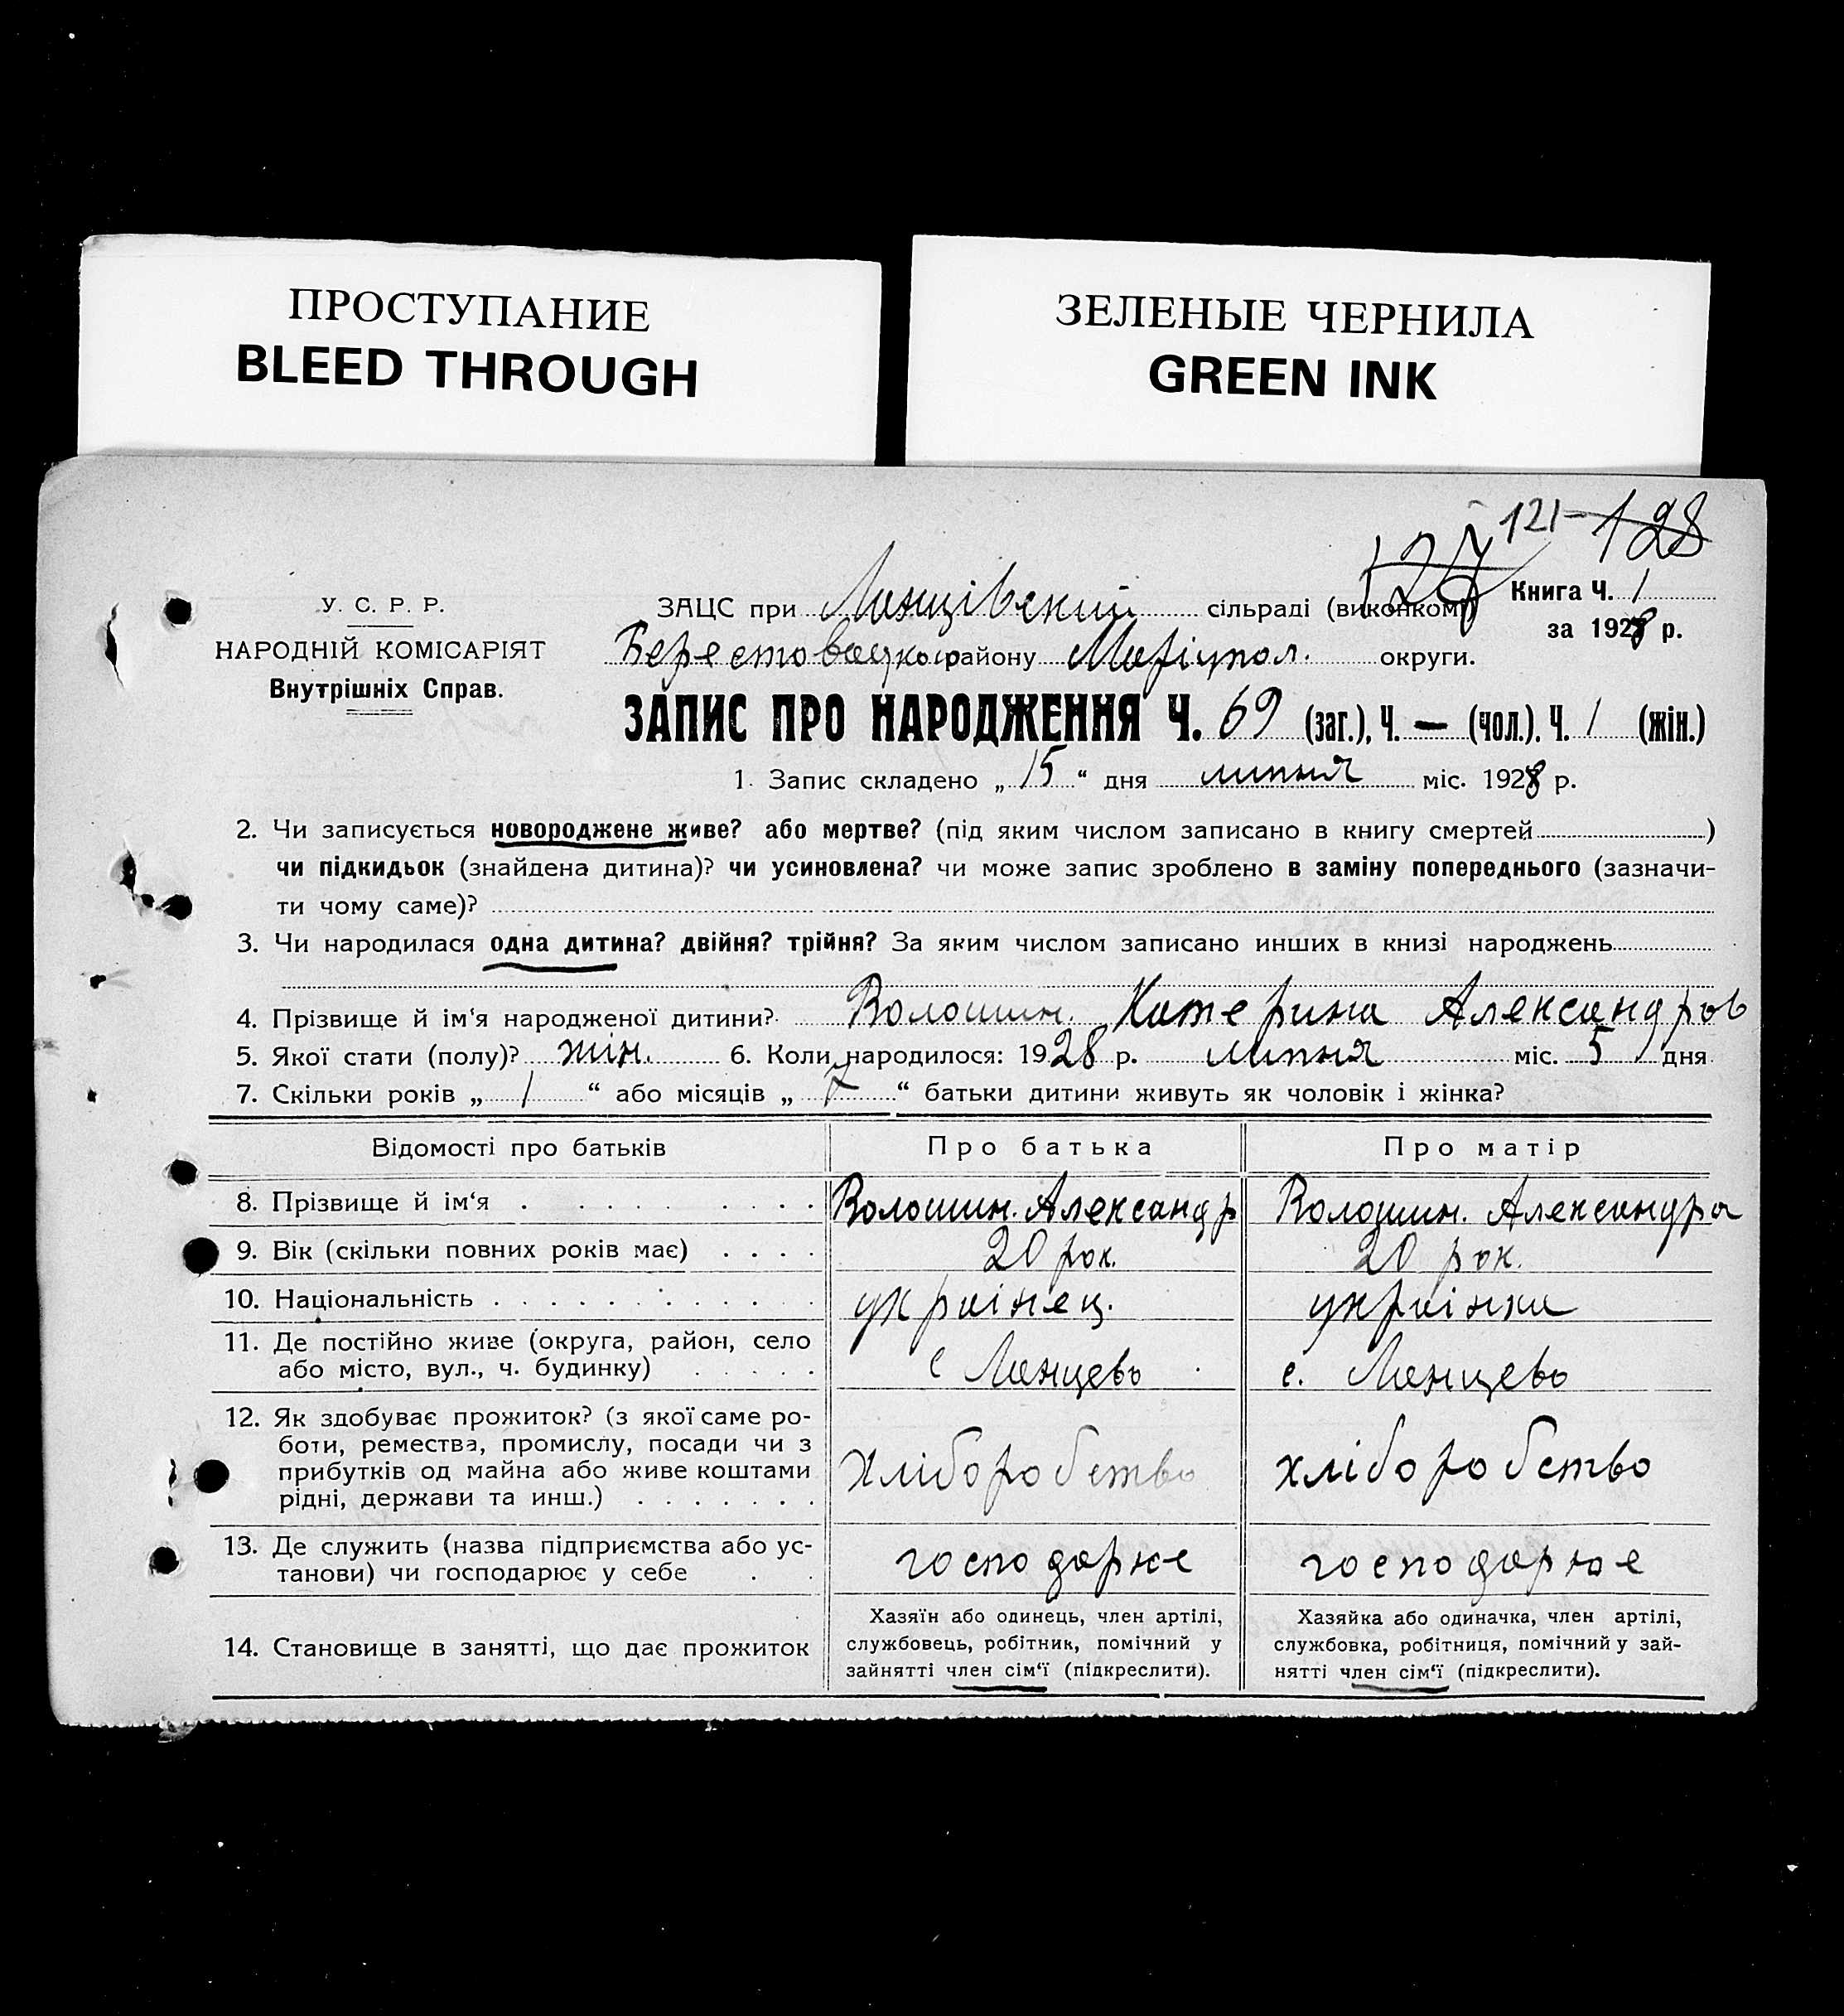 ПРОСТУПАНИЕ
BLEED THROUGH
ЗЕЛЕНЫЕ ЧЕРНИЛА
GREEN INK
127 121 128
У. С. Р. Р.
НАРОДНІЙ КОМІСАРІЯТ
Внутрішніх Справ.
Книга Ч. 1
за 1928 р.
ЗАЦС при сільраді (виконкомі)
Берестовецького району Маріупол. округи.
ЗАПИС ПРО НАРОДЖЕННЯ Ч. 69 (заг.), Ч. — (чол.). Ч. 1 (жін.)
1. Запис складено „15“ дня липня міс. 1928 р.
2. Чи записується новороджене живе? або мертве? (під яким числом записано в книгу смертей )
чи підкидьок (знайдена дитина)? чи усиновлена? чи може запис зроблено в заміну попереднього (зазначи-
ти чому саме)?
3. Чи народилася одна дитина? двійня? трійня? За яким числом записано инших в книзі народжень
4. Прізвище й ім‘я народженої дитини? Волошин. Катерина Александров
5. Якої стати (полу)? жін. 6. Коли народилося: 1928 р. липня міс. 5 дня
7. Скільки років „ 1 “ або місяців „ 7 “ батьки дитини живуть як чоловік і жінка?
Відомості про батьків Про батька Про матір
8. Прізвище й ім‘я Волошин. Александр Волошин. Александра
9. Вік (скільки повних років має) 20 рок. 20 рок.
10. Національність українец. українка
11. Де постійно живе (округа, район, село
або місто, вул., ч. будинку)
12. Як здобуває прожиток? (з якої саме ро-
боти, ремества, промислу, посади чи з
прибутків од майна або живе коштами
рідні, держави та инш.)
хліборобство хліборобство
13. Де служить (назва підприємства або ус-
танови) чи господарює у себе
господарює господарює
14. Становище в занятті, що дає прожиток
Хазяїн або одинець, член артілі,
службовець, робітник, помічний у
зайнятті член сім‘ї (підкреслити).
Хазяйка або одиначка, член артілі,
службовка, робітниця, помічний у зай-
нятті член сім‘ї (підкреслити).